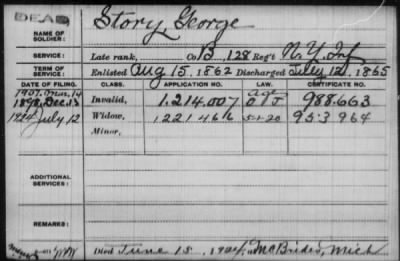 DEAD
NAME OF SOLDIER: Story, George
SERVICE: Late rank, Co B, 128 Reg't N.Y. Inf
TERM OF SERVICE: Enlisted Aug 15, 1862 Discharged July 12, 1865
DATE OF FILING. CLASS. APPLICATION NO. LAW. CERTIFICATE NO.
1907. Mar. 14
1898, Dec. 13 Invalid, 1.214.007 age 988.663
1924 July 12 Widow, 1221466 5-1-20 953964
Minor,
ADDITIONAL SERVICES:
REMARKS:
Died June 15, 1924, McBrides, Mich